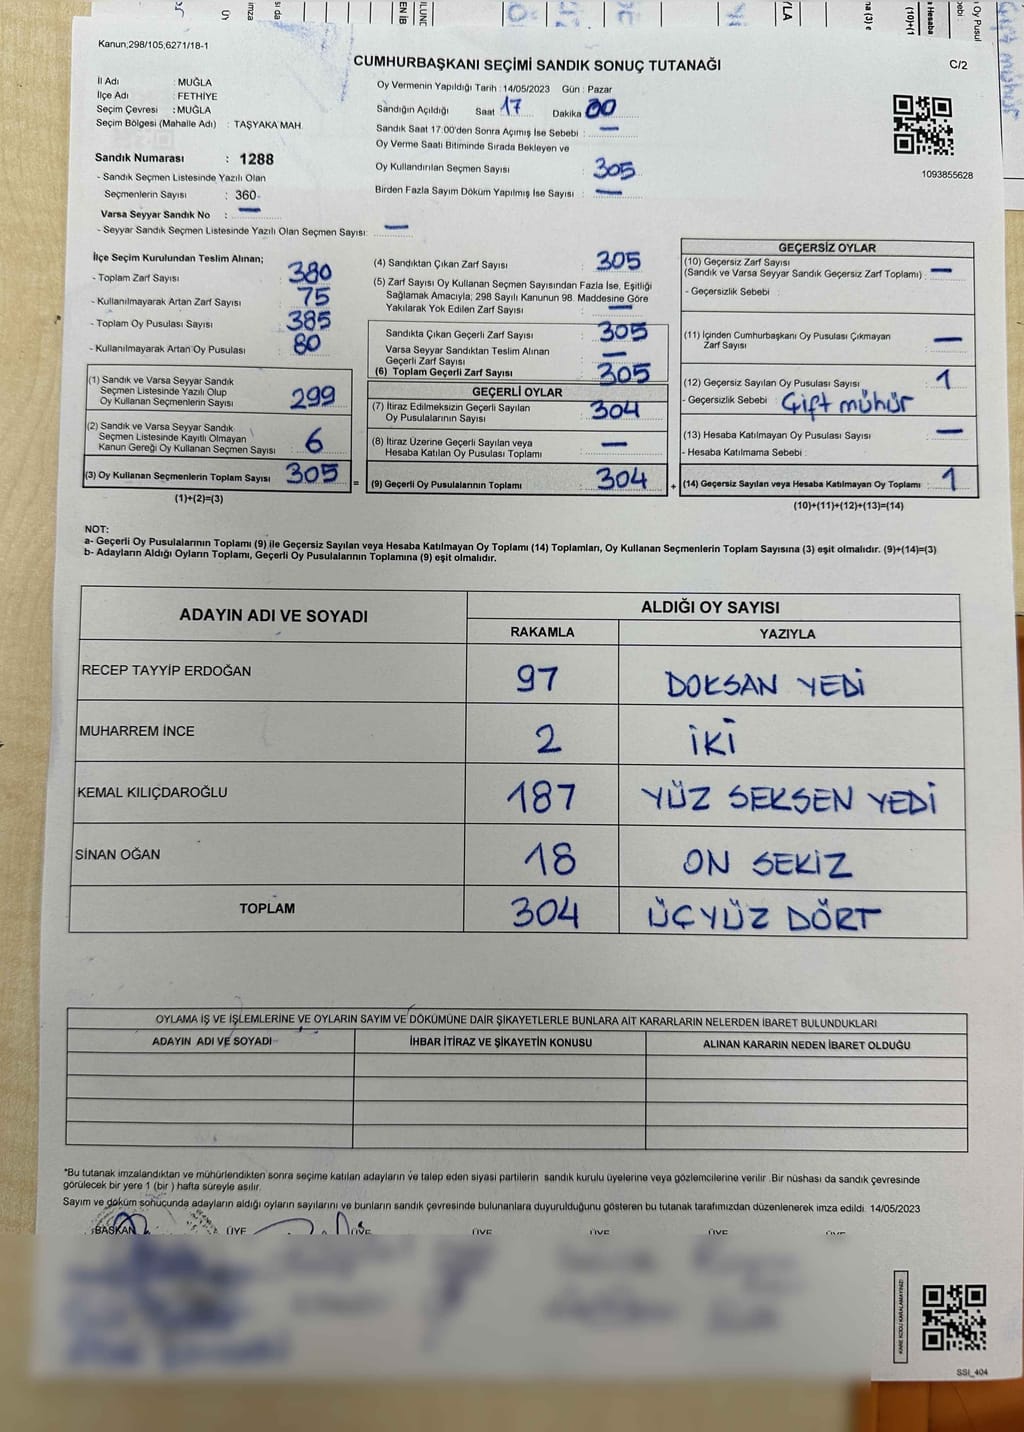 Kanun,298/105,6271/18-1
CUMHURBAŞKANI SEÇİMİ SANDIK SONUÇ TUTANAĞI
C/2
İl Adı : MUĞLA
İlçe Adı : FETHİYE
Seçim Çevresi : MUĞLA
Seçim Bölgesi (Mahalle Adı) : TAŞYAKA MAH.
Sandık Numarası : 1288
- Sandık Seçmen Listesinde Yazılı Olan
Seçmenlerin Sayısı : 360
Varsa Seyyar Sandık No : —
- Seyyar Sandık Seçmen Listesinde Yazılı Olan Seçmen Sayısı: —
Oy Vermenin Yapıldığı Tarih : 14/05/2023 Gün : Pazar
Sandığın Açıldığı Saat 17 Dakika 00
Sandık Saat 17:00'den Sonra Açımış İse Sebebi : —
Oy Verme Saati Bitiminde Sırada Bekleyen ve
Oy Kullandırılan Seçmen Sayısı : 305
Birden Fazla Sayım Döküm Yapılmış İse Sayısı : —
1093855628
İlçe Seçim Kurulundan Teslim Alınan;
- Toplam Zarf Sayısı : 380
- Kullanılmayarak Artan Zarf Sayısı : 75
- Toplam Oy Pusulası Sayısı : 385
- Kullanılmayarak Artan Oy Pusulası : 80
(1) Sandık ve Varsa Seyyar Sandık
Seçmen Listesinde Yazılı Olup
Oy Kullanan Seçmenlerin Sayısı : 299
(2) Sandık ve Varsa Seyyar Sandık
Seçmen Listesinde Kayıtlı Olmayan
Kanun Gereği Oy Kullanan Seçmen Sayısı : 6
(3) Oy Kullanan Seçmenlerin Toplam Sayısı : 305
(1)+(2)=(3)
(4) Sandıktan Çıkan Zarf Sayısı : 305
(5) Zarf Sayısı Oy Kullanan Seçmen Sayısından Fazla İse, Eşitliği
Sağlamak Amacıyla; 298 Sayılı Kanunun 98. Maddesine Göre
Yakılarak Yok Edilen Zarf Sayısı : —
Sandıkta Çıkan Geçerli Zarf Sayısı : 305
Varsa Seyyar Sandıktan Teslim Alınan
Geçerli Zarf Sayısı : —
(6) Toplam Geçerli Zarf Sayısı : 305
GEÇERLİ OYLAR
(7) İtiraz Edilmeksizin Geçerli Sayılan
Oy Pusulalarının Sayısı : 304
(8) İtiraz Üzerine Geçerli Sayılan veya
Hesaba Katılan Oy Pusulası Toplamı : —
= (9) Geçerli Oy Pusulalarının Toplamı : 304
GEÇERSİZ OYLAR
(10) Geçersiz Zarf Sayısı
(Sandık ve Varsa Seyyar Sandık Geçersiz Zarf Toplamı) : —
- Geçersizlik Sebebi :
(11) İçinden Cumhurbaşkanı Oy Pusulası Çıkmayan
Zarf Sayısı : —
(12) Geçersiz Sayılan Oy Pusulası Sayısı : 1
- Geçersizlik Sebebi : Çift mühür
(13) Hesaba Katılmayan Oy Pusulası Sayısı : —
- Hesaba Katılmama Sebebi :
+ (14) Geçersiz Sayılan veya Hesaba Katılmayan Oy Toplamı : 1
(10)+(11)+(12)+(13)=(14)
NOT:
a- Geçerli Oy Pusulalarının Toplamı (9) ile Geçersiz Sayılan veya Hesaba Katılmayan Oy Toplamı (14) Toplamları, Oy Kullanan Seçmenlerin Toplam Sayısına (3) eşit olmalıdır. (9)+(14)=(3)
b- Adayların Aldığı Oyların Toplamı, Geçerli Oy Pusulalarının Toplamına (9) eşit olmalıdır.
ADAYIN ADI VE SOYADI ALDIĞI OY SAYISI
RAKAMLA YAZIYLA
RECEP TAYYİP ERDOĞAN 97 DOKSAN YEDİ
MUHARREM İNCE 2 İKİ
KEMAL KILIÇDAROĞLU 187 YÜZ SEKSEN YEDİ
SİNAN OĞAN 18 ON SEKİZ
TOPLAM 304 ÜÇYÜZ DÖRT
OYLAMA İŞ VE İŞLEMLERİNE VE OYLARIN SAYIM VE DÖKÜMÜNE DAİR ŞİKAYETLERLE BUNLARA AİT KARARLARIN NELERDEN İBARET BULUNDUKLARI
ADAYIN ADI VE SOYADI İHBAR İTİRAZ VE ŞİKAYETİN KONUSU ALINAN KARARIN NEDEN İBARET OLDUĞU
*Bu tutanak imzalandıktan ve mühürlendikten sonra seçime katılan adayların ve talep eden siyasi partilerin sandık kurulu üyelerine veya gözlemcilerine verilir. Bir nüshası da sandık çevresinde
görülecek bir yere 1 (bir ) hafta süreyle asılır.
Sayım ve döküm sonucunda adayların aldığı oyların sayılarını ve bunların sandık çevresinde bulunanlara duyurulduğunu gösteren bu tutanak tarafımızdan düzenlenerek imza edildi. 14/05/2023
BAŞKAN ÜYE ÜYE ÜYE ÜYE ÜYE ÜYE
KARE KODU KARALAMAYINIZ!
SSİ_404